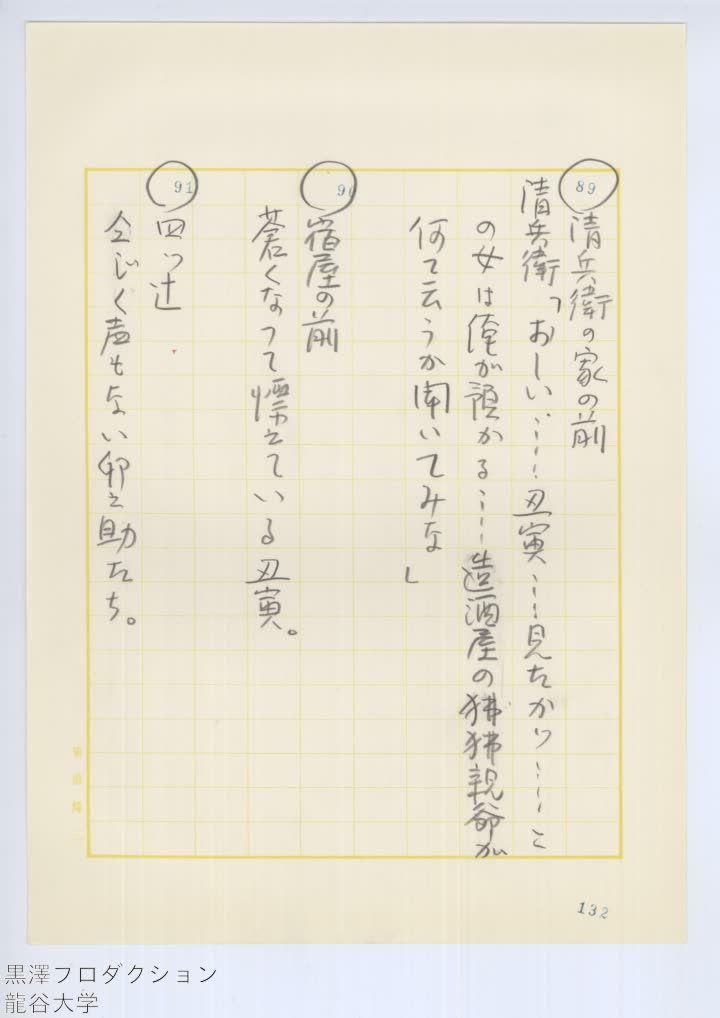 89
清兵衛の家の前
清兵衛「おしい……丑寅……見たかり……こ
の女は俺が預かる……造酒屋の狒狒親爺が
何て云うか聞いてみな」
90
宿屋の前
蒼くなって慄えている丑寅。
91
四つ辻
全じく声もない卯之助たち。
132
黒澤プロダクション
龍谷大学